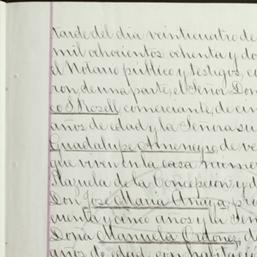 tarde del dia veinticuatro de
mil ochocientos ochenta y do
el Notario público y testigos, co
ron de una parte, el Señor Don
comerciante, de cin
años de edad y la Señora su
Guadalupe de ve
que viven en la casa nume
Plazuela de la Concepcion, y d
Don Jose Maria Anaya,
cuenta y cinco años y la Señ
Doña Manuela Ordoñez, d
años de edad con habitacio